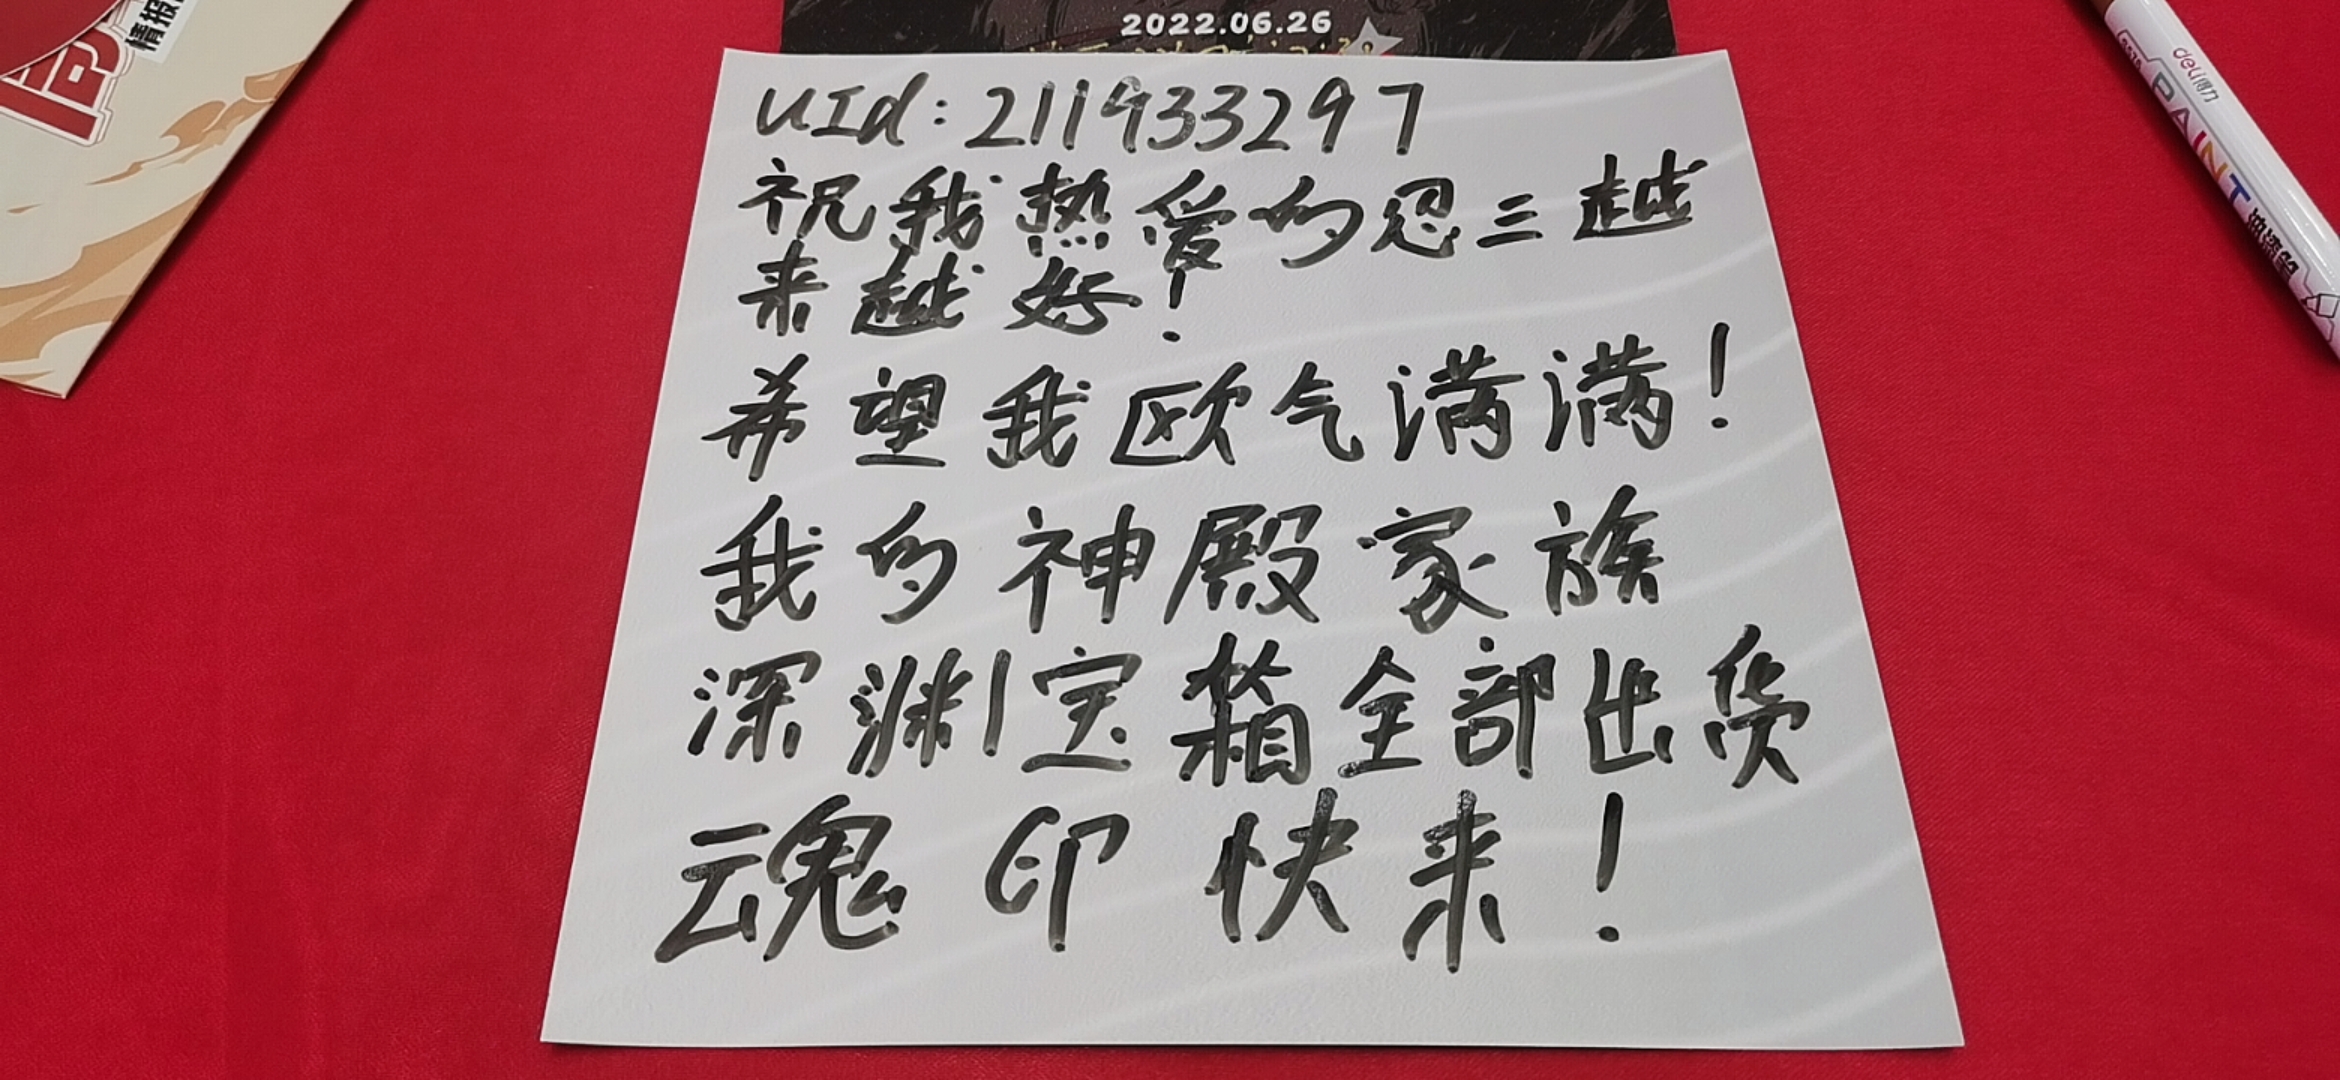 情报
2022.06.26
UId:211933297
祝我热爱的忍三越
来越好!
希望我欧气满满!
我的神殿家族
深渊宝箱全部出货
魂印快来!
deli得力
PAINT